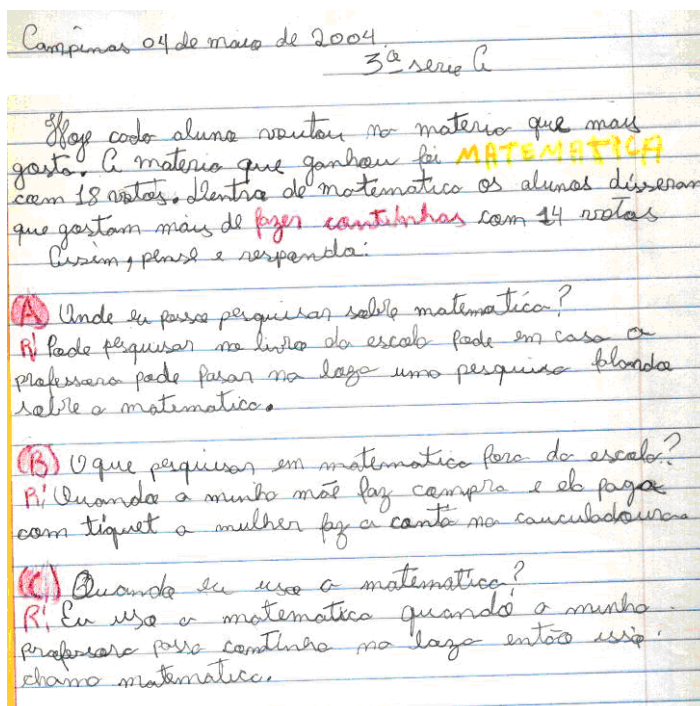 Campinas 04 de maio de 2004.
3ª serie A
Hoje cada aluno voutou na materia que mais
gosta. A materia que ganhou foi MATEMATICA
com 18 votos. Dentro de matematica os alunos disseram
que gostam mais de fazer continhas com 14 votos
Assim, pense e responda:
A Onde eu posso perquisar sobre matematica?
R: Pode pesquisar no livro da escola pode em casa a
professora pode pasar na loza uma pesquisa falando
sobre a matematica.
B O que perquisar em matematica fora da escola?
R: Quando a minha mãe faz compra e ela paga
com tiquet a mulher faz a conta na cauculadoura
C Quando eu uso a matematica?
R: Eu uso a matematica quando a minha
professora passa continha na loza então isso
chama matematica.